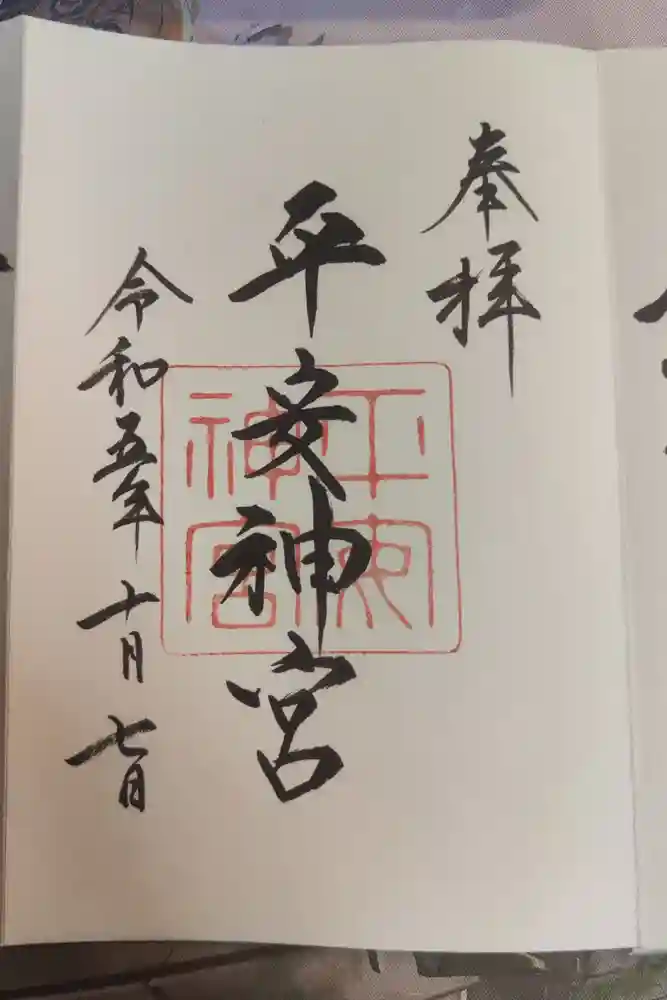 奉拝
平安神宮
令和五年十月七日
平安神宮